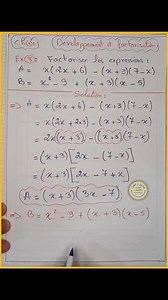 Développement et factorisation
Ex(3): Factoriser les expressions:
A = x(2x + 6) - (x + 3)(7 - x)
B = x² - 9 + (x + 3)(x - 5)
Solution:
⇒ A = x(2x + 6) - (x + 3)(7 - x)
= x(2x + 2×3) - (x + 3)(7 - x)
= 2x(x + 3) - (x + 3)(7 - x)
= (x + 3)[2x - (7 - x)]
= (x + 3)[2x - 7 + x]
A = (x + 3)(3x - 7)
⇒ B = x² - 9 + (x + 3)(x - 5)